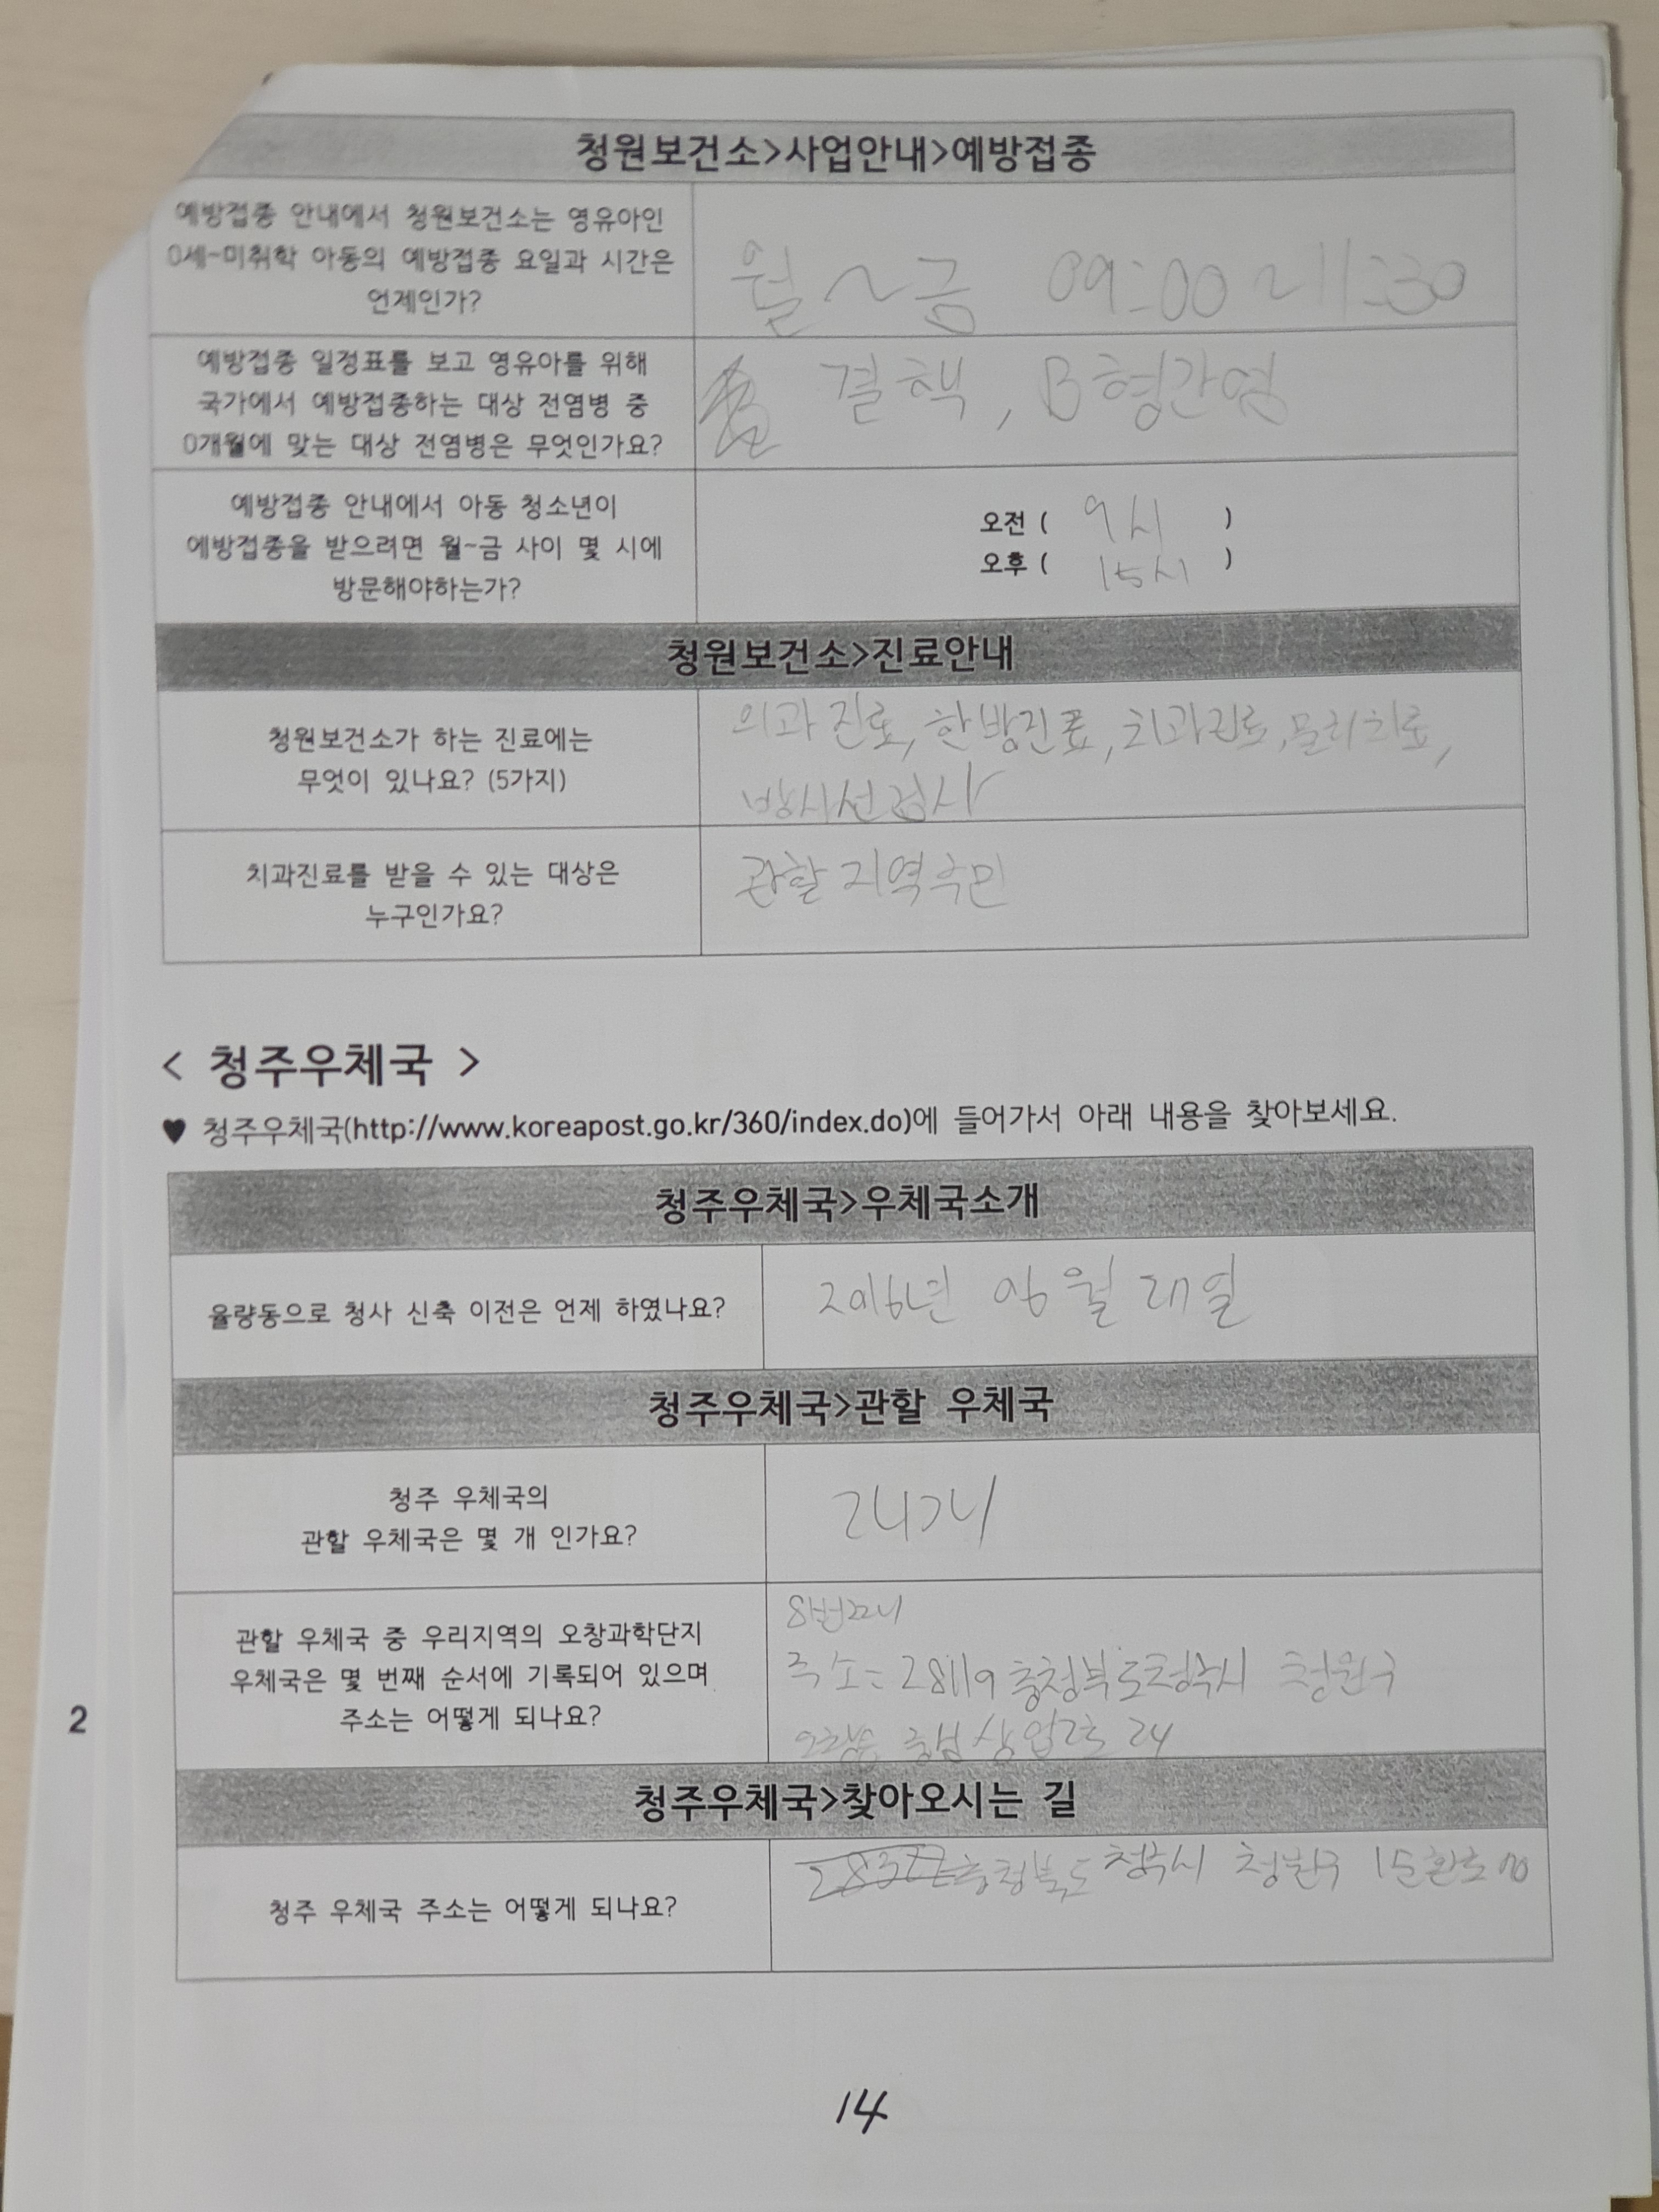 청원보건소>사업안내>예방접종
예방접종 안내에서 청원보건소는 영유아인
0세~미취학 아동의 예방접종 요일과 시간은
언제인가?
월 ~ 금 09:00 ~ 11:30
예방접종 일정표를 보고 영유아를 위해
국가에서 예방접종하는 대상 전염병 중
0개월에 맞는 대상 전염병은 무엇인가요?
결핵, B형간염
예방접종 안내에서 아동 청소년이
예방접종을 받으려면 월~금 사이 몇 시에
방문해야하는가?
오전 ( 9시 )
오후 ( 15시 )
청원보건소>진료안내
청원보건소가 하는 진료에는
무엇이 있나요? (5가지)
의과진료, 한방진료, 치과진료, 물리치료,
방사선검사
치과진료를 받을 수 있는 대상은
누구인가요?
관할 지역주민
< 청주우체국 >
♥ 청주우체국(http://www.koreapost.go.kr/360/index.do)에 들어가서 아래 내용을 찾아보세요.
청주우체국>우체국소개
율량동으로 청사 신축 이전은 언제 하였나요?
2016년 06월 27일
청주우체국>관할 우체국
청주 우체국의
관할 우체국은 몇 개 인가요?
24개
관할 우체국 중 우리지역의 오창과학단지
우체국은 몇 번째 순서에 기록되어 있으며
주소는 어떻게 되나요?
8번째
주소: 28119 충청북도청주시 청원구
오창읍 중심상업2로 24
청주우체국>찾아오시는 길
청주 우체국 주소는 어떻게 되나요?
충청북도 청주시 청원구 1순환로
2
14